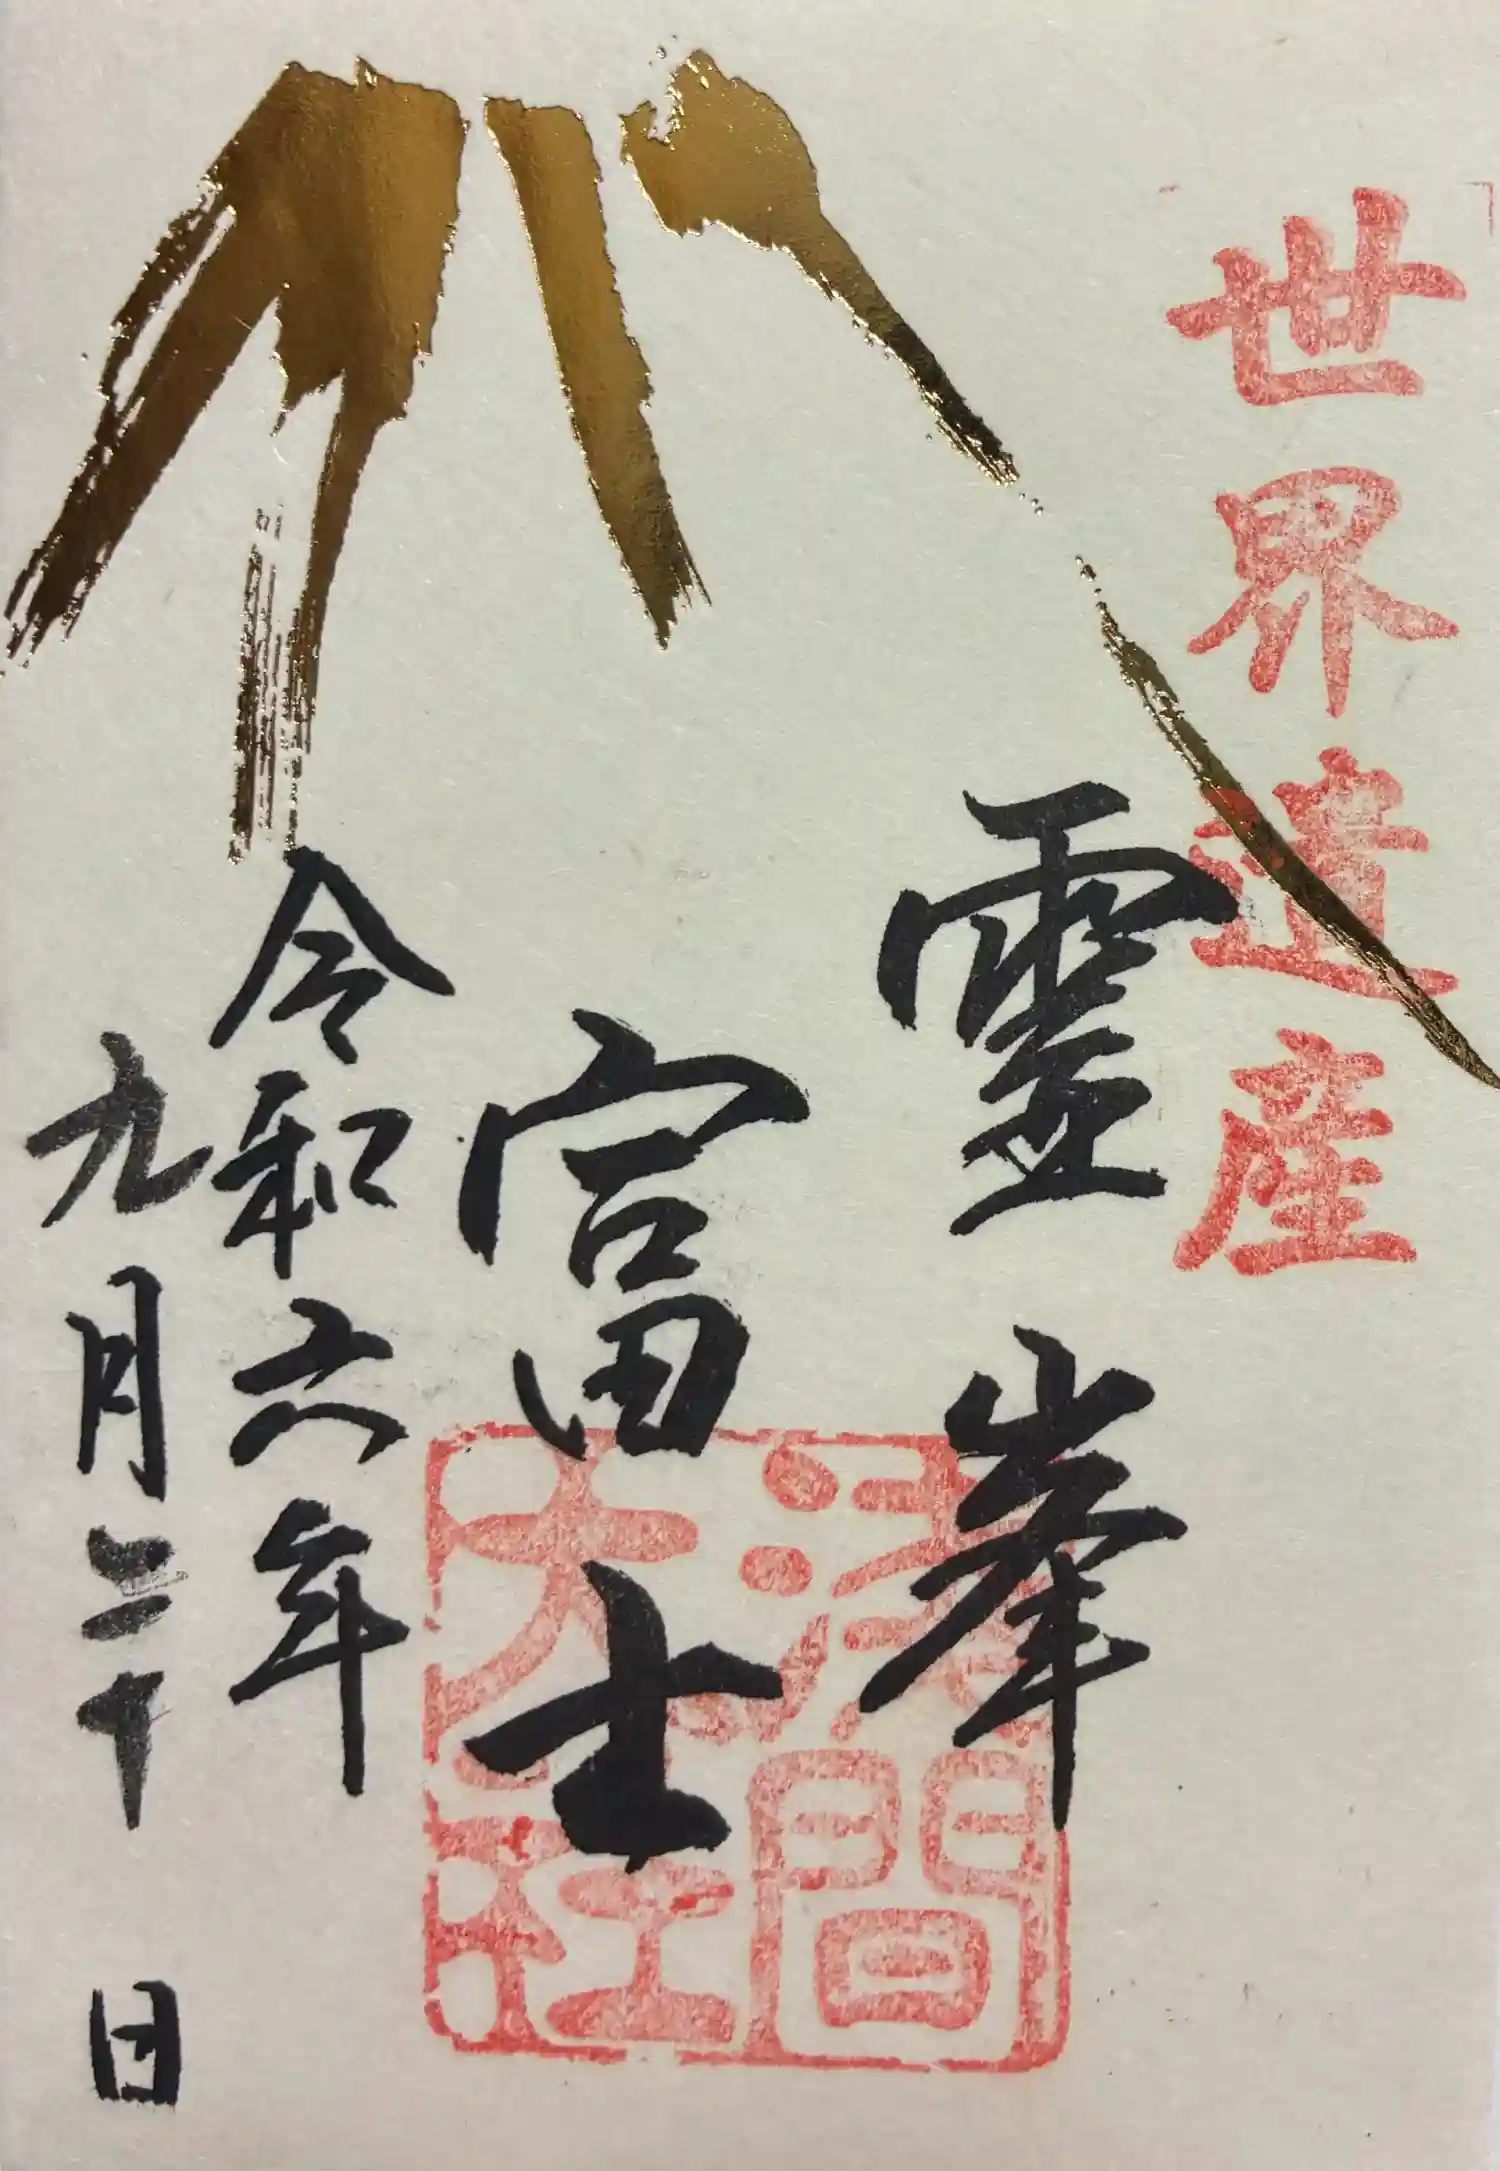 世界遺産
靈峯
富士
淺間
大社
令和六年
九月三十日